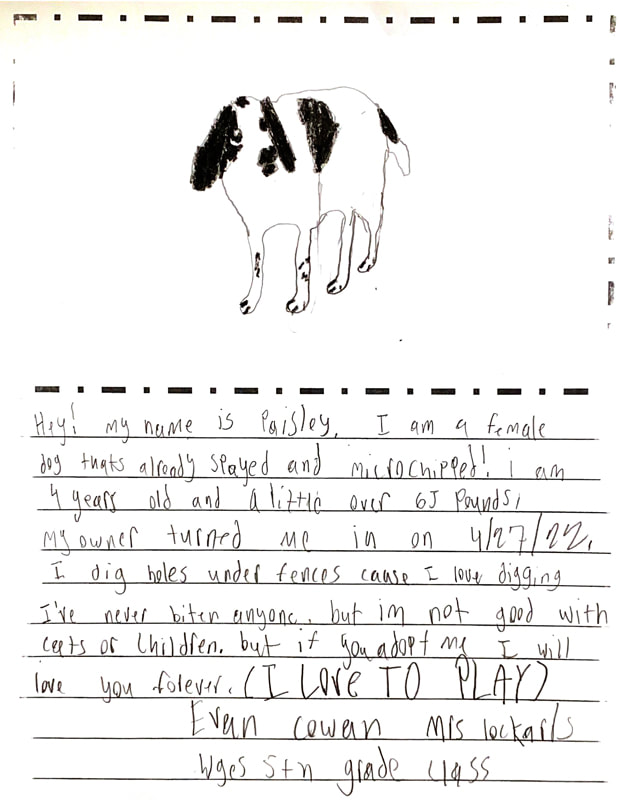 Hey! my name is Paisley, I am a female
dog thats already spayed and microchipped! i am
4 years old and a little over 65 Pounds,
my owner turned me in on 4/27/22.
I dig holes under fences cause I love digging
I've never biten anyone. but im not good with
cats or children. but if you adopt me I will
love you forever. (I LOVE TO PLAY)
Evan cowan Mrs lockarls
Wges 5th grade class